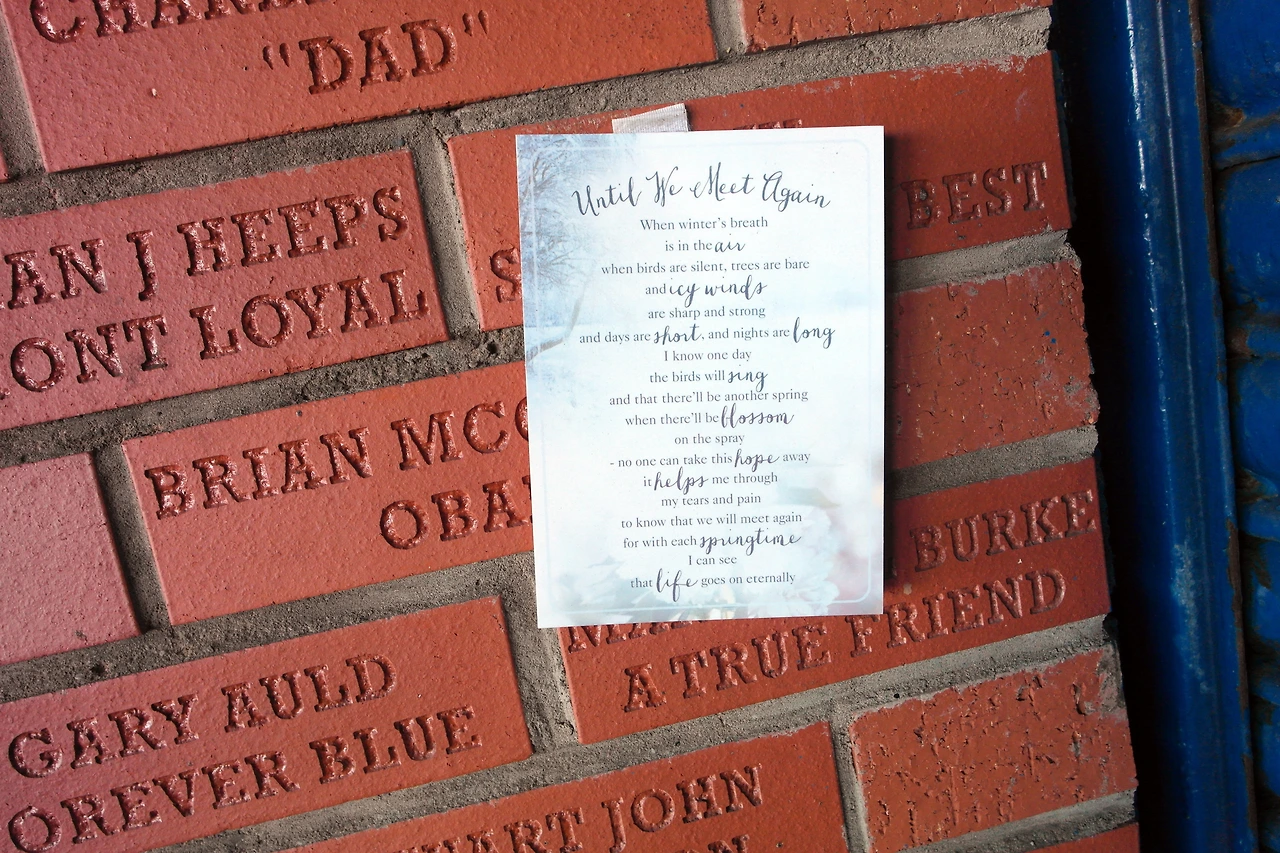 "DAD"
J HEEPS
LOYAL
BEST
BRIAN
GARY AULD
BLUE
BURKE
A TRUE FRIEND
JOHN
Until We Meet Again
When winter's breath
is in the air
when birds are silent, trees are bare
and icy winds
are sharp and strong
and days are short, and nights are long
I know one day
the birds will sing
and that there'll be another spring
when there'll be blossom
on the spray
- no one can take this hope away
it helps me through
my tears and pain
to know that we will meet again
for with each springtime
I can see
that life goes on eternally